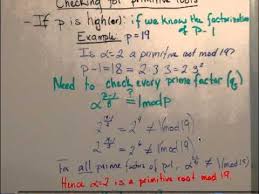 Checking for primitive roots
- If p is high(er): if we know the factorization of P-1
Example: p=19
Is α=2 a primitive root mod 19?
p-1=18= 2·3·3=2·3²
Need to check every prime factor (q)
≡ 1 mod p
≠ 1 mod 19
≠ 1 mod 19
For all prime factors of p-1, ≠ 1 mod 19
Hence α=2 is a primitive root mod 19.